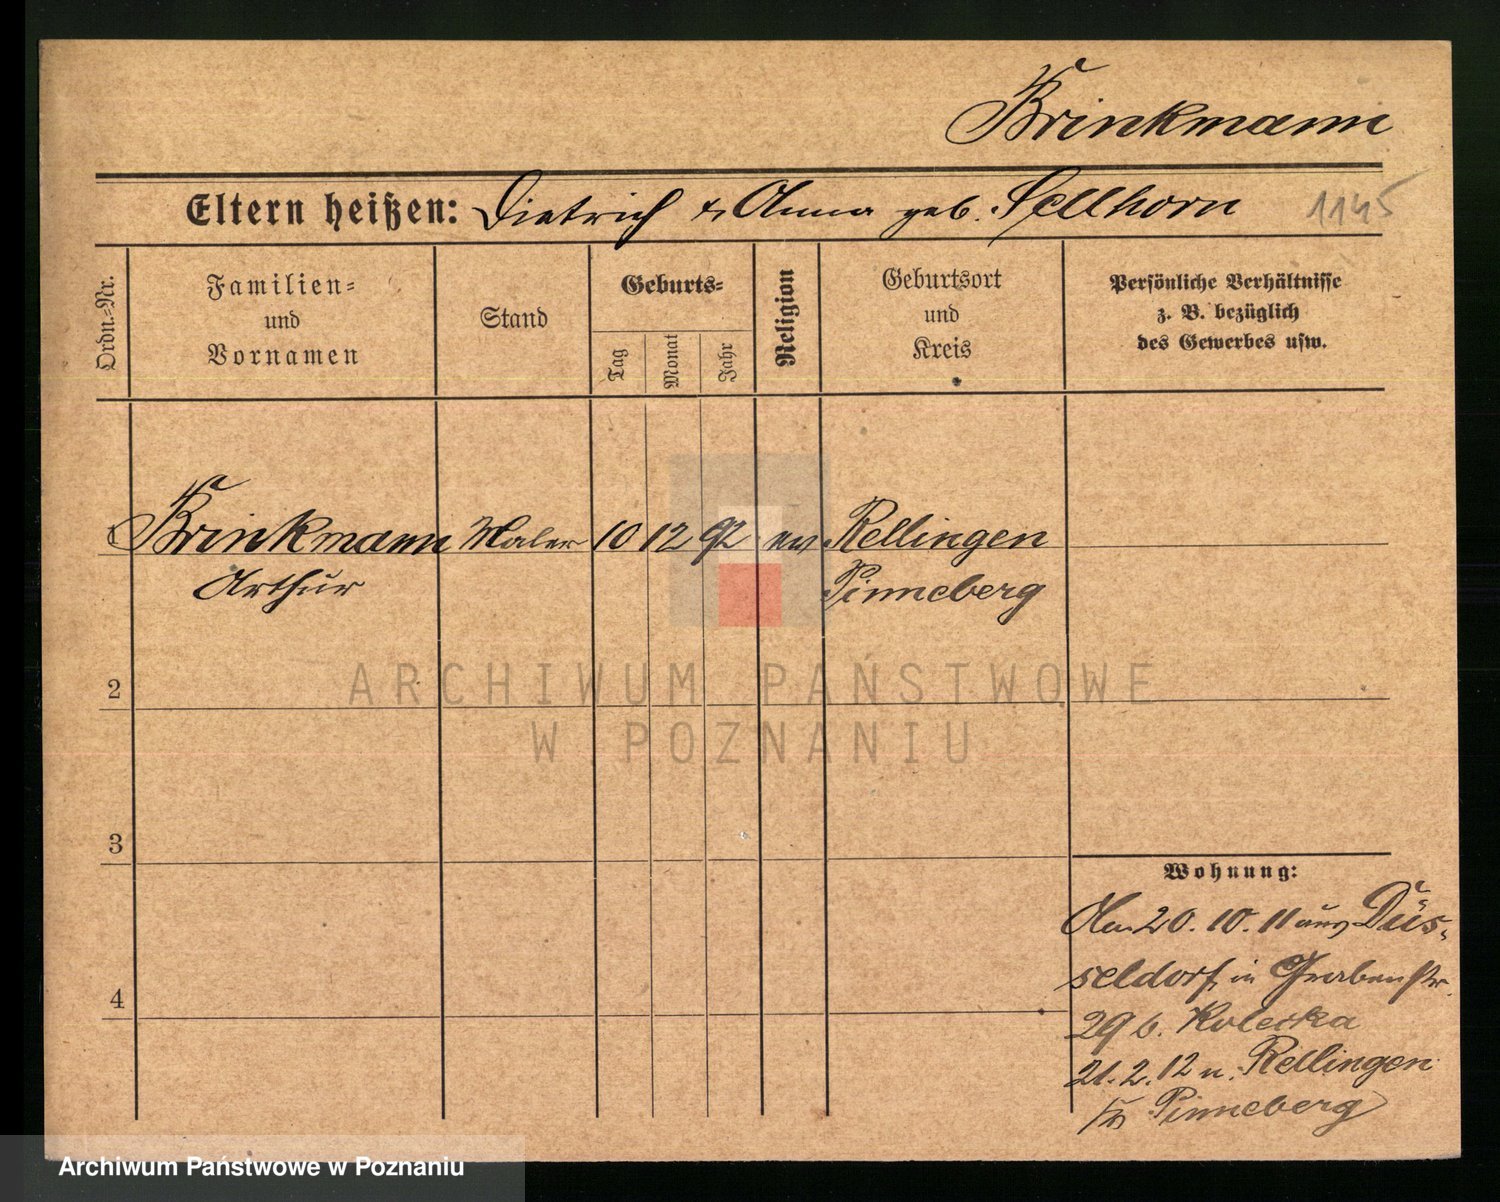 Brinkmann
Eltern heißen: Dietrich & Anna geb. Sellhorn 1145
Ordn.=Nr.
Familien=
und
Vornamen
Stand
Geburts=
Tag
Monat
Jahr
Religion
Geburtsort
und
Kreis
Persönliche Verhältnisse
z. B. bezüglich
des Gewerbes usw.
1 Brinkmann Maler 10 12 92 ev Rellingen
Arthur Pinneberg
2
ARCHIWUM PAŃSTWOWE
W POZNANIU
3
4
Wohnung:
Am 20. 10. 11 aus Düs-
seldorf, in Grabenstr.
29 b. Koleska
21. 2. 12 n. Rellingen
Kr Pinneberg
Archiwum Państwowe w Poznaniu